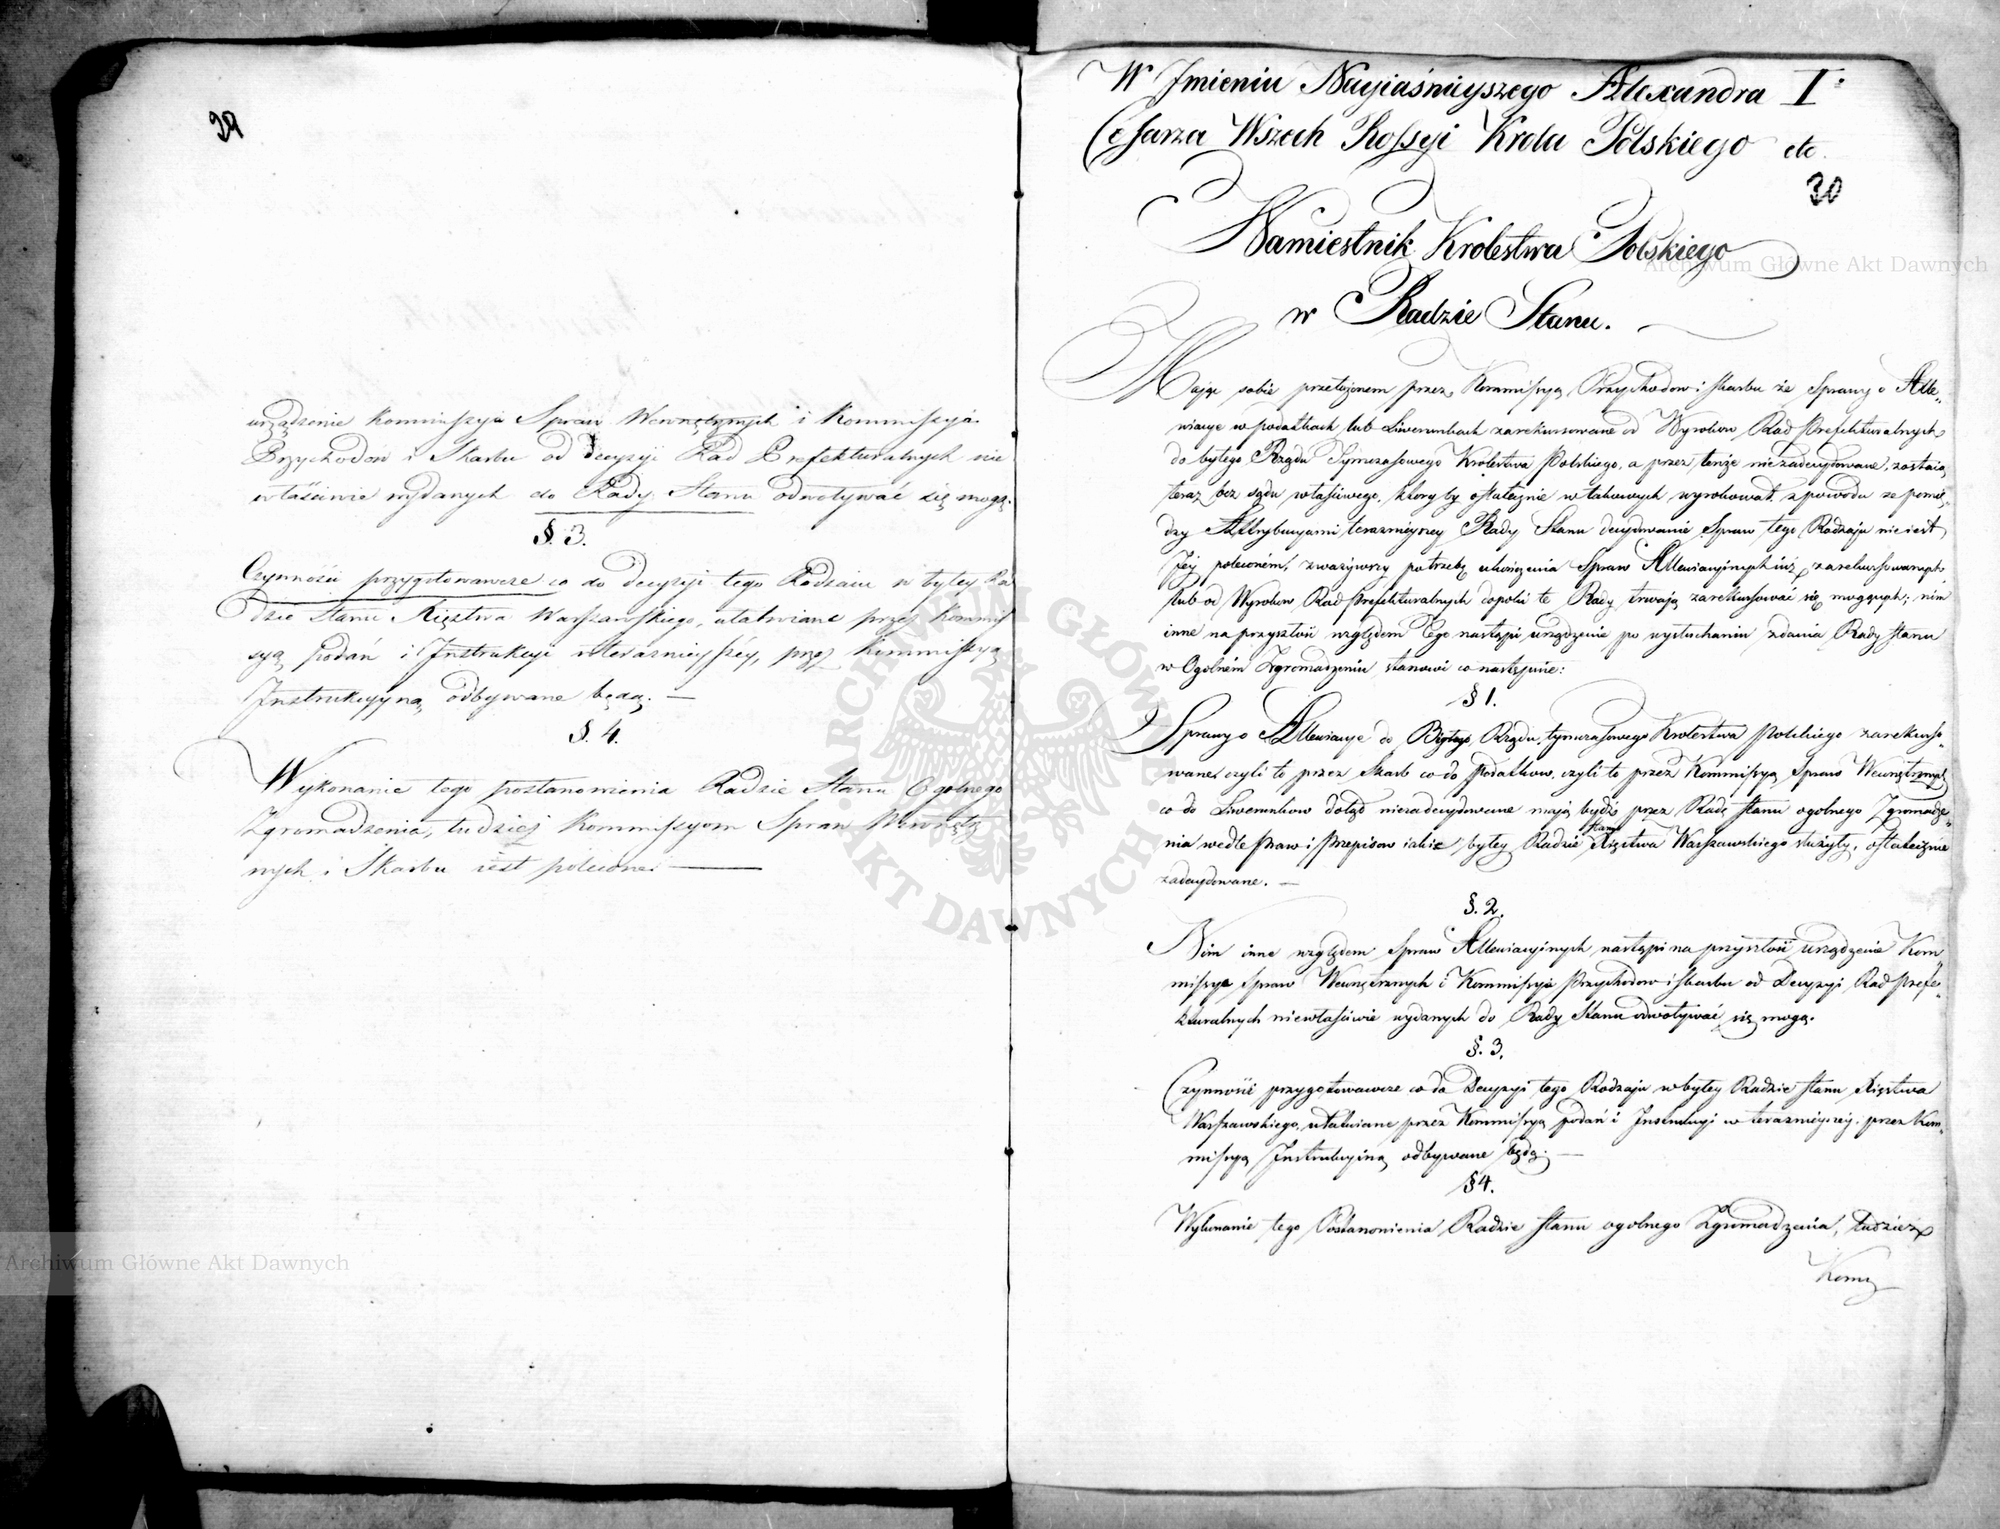 29
urządzenie Kommissya Spraw Wewnętrznych i Kommissya
Przychodów i Skarbu od Decyzyi Rad Prefekturalnych nie
właściwie wydanych do Rady Stanu odwoływać się mogą.
§. 3.
Czynności przygotowawcze co do Decyzyi tego Rodzaiu w byłey Ra
dzie Stanu Xięztwa Warszawskiego, ułatwiane przez Kommis
syą podań i Instrukcyi w teraśnieyszéy, przez Kommissyą
Instrukcyyną odbywane będą. —
§. 4.
Wykonanie tego postanowienia Radzie Stanu Ogolnego
Zgromadzenia, tudzież Kommissyom Spraw Wewnętrz
nych i Skarbu iest polecone. —
W Jmieniu Nayiaśnieyszego Alexandra I:
Cesarza Wszech Rossyi Krola Polskiego etc.
30
Namiestnik Krolestwa Polskiego
w Radzie Stanu.
Maiąc sobie przełożonem przez Kommissyą Przychodow i Skarbu że Sprawy o Alle„
wiacye w podatkach lub Liwerunkach zarekursowane od Wyrokow Rad Prefekturalnych
do byłego Rządu Tymczasowego Krolestwa Polskiego, a przez tenże niezadecydowane, zostaią
teraz bez sądu właściwego, ktory by ostatecznie w takowych wyrokował, z powodu że pomię„
dzy Attrybucyami terazniejszey Rady Stanu decydowanie Spraw tego Rodzaju nie iest
Jey poleconém, zważywszy potrzebę ukończenia Spraw Allewiacyinych iuż zarekursowanych
lub od Wyrokow Rad Prefekturalnych dopoki te Rady trwaią zarekursować się mogących; nim
inne na przyszłość względem Tego nastąpi urządzenie po wysłuchaniu zdania Rady Stanu
w Ogolném Zgromadzeniu stanowi co następuie:
§ 1.
Sprawy o Allewiacye do Byłego Rządu tymczasowego Krolestwa Polskiego zarekurso„
wane, czyli to przez Skarb co do Podatkow, czyli to przez Kommissyą Spraw Wewnętrznych
co do Liwerunkow dotąd niezadecydowane maią bydź przez Radę Stanu ogolnego Zgromadze„
nia wedle Praw i Przepisow iakie byłey Radzie Stanu Xięztwa Warszawskiego służyły, ostatecznie
zadecydowane. —
§. 2.
Nim inne względem Spraw Allewiacyinych nastąpi na przyszłość urządzenie Kom„
missya Spraw Wewnętrznych i Kommissya Przychodow i Skarbu od Decyzyi Rad Prefe„
kturalnych niewłaściwie wydanych do Rady Stanu odwoływać się mogą.
§. 3.
Czynności przygotowawcze co do Decyzyi tego Rodzaju w byłey Radzie Stanu Xięztwa
Warszawskiego, ułatwiane przez Kommissyą podań i Instrukcyi w terazniejszey, przez Kom„
missyą Instrukcyiną odbywane będą. —
§ 4.
Wykonanie tego Postanowienia Radzie Stanu ogolnego Zgromadzenia, tudzież
Komm
Archiwum Główne Akt Dawnych
Archiwum Główne Akt Dawnych
ARCHIWUM GŁÓWNE · AKT DAWNYCH ·